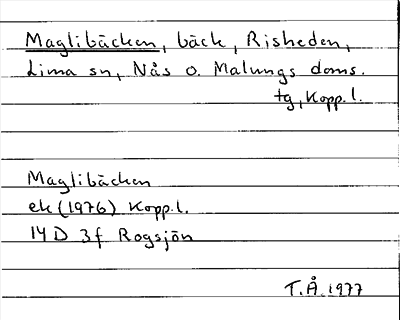 Maglibäcken, bäck, Risheden,
Lima sn, Nås o. Malungs doms.
tg, Kopp. l.
Maglibäcken
ek (1976) Kopp. l.
14 D 3f Rogsjön
T.Å. 1977